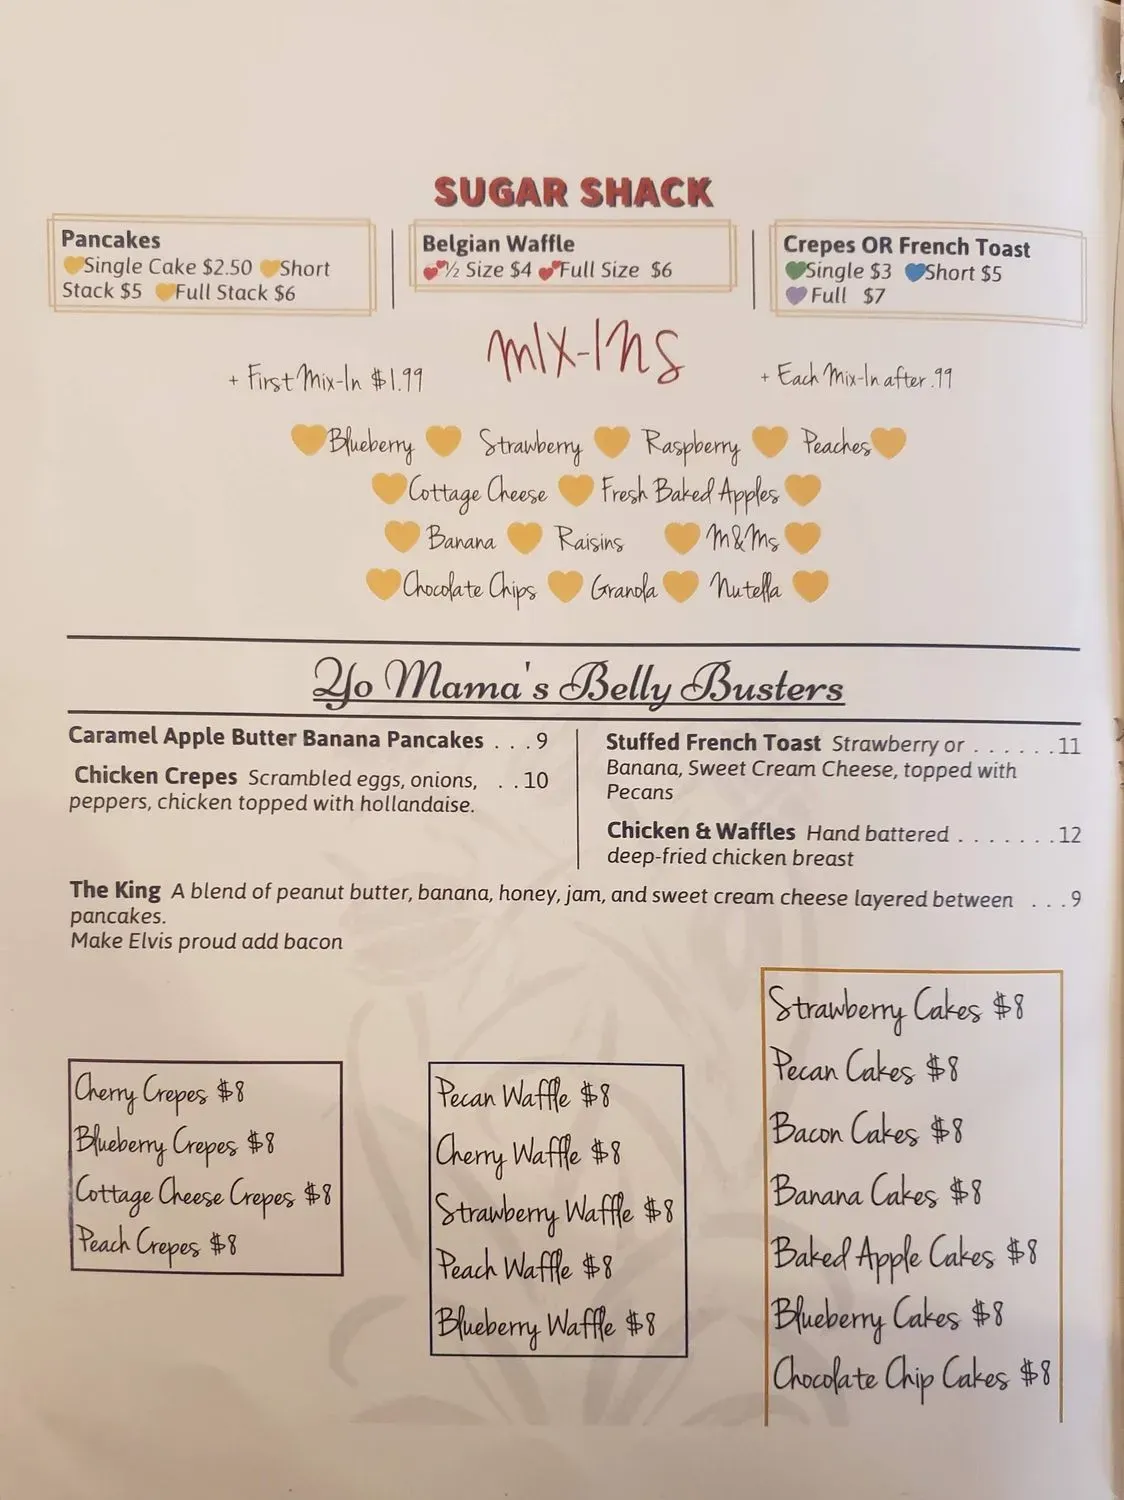 SUGAR SHACK
Pancakes
Single Cake $2.50 Short
Stack $5 Full Stack $6
Belgian Waffle
½ Size $4 Full Size $6
Crepes OR French Toast
Single $3 Short $5
Full $7
MIX-INS
+ First Mix-In $1.99
+ Each Mix-In after .99
Blueberry Strawberry Raspberry Peaches
Cottage Cheese Fresh Baked Apples
Banana Raisins M&Ms
Chocolate Chips Granola Nutella
Yo Mama's Belly Busters
Caramel Apple Butter Banana Pancakes . . . 9
Chicken Crepes Scrambled eggs, onions, . . . 10
peppers, chicken topped with hollandaise.
Stuffed French Toast Strawberry or . . . . . . 11
Banana, Sweet Cream Cheese, topped with
Pecans
Chicken & Waffles Hand battered . . . . . . . 12
deep-fried chicken breast
The King A blend of peanut butter, banana, honey, jam, and sweet cream cheese layered between . . . 9
pancakes.
Make Elvis proud add bacon
Cherry Crepes $8
Blueberry Crepes $8
Cottage Cheese Crepes $8
Peach Crepes $8
Pecan Waffle $8
Cherry Waffle $8
Strawberry Waffle $8
Peach Waffle $8
Blueberry Waffle $8
Strawberry Cakes $8
Pecan Cakes $8
Bacon Cakes $8
Banana Cakes $8
Baked Apple Cakes $8
Blueberry Cakes $8
Chocolate Chip Cakes $8